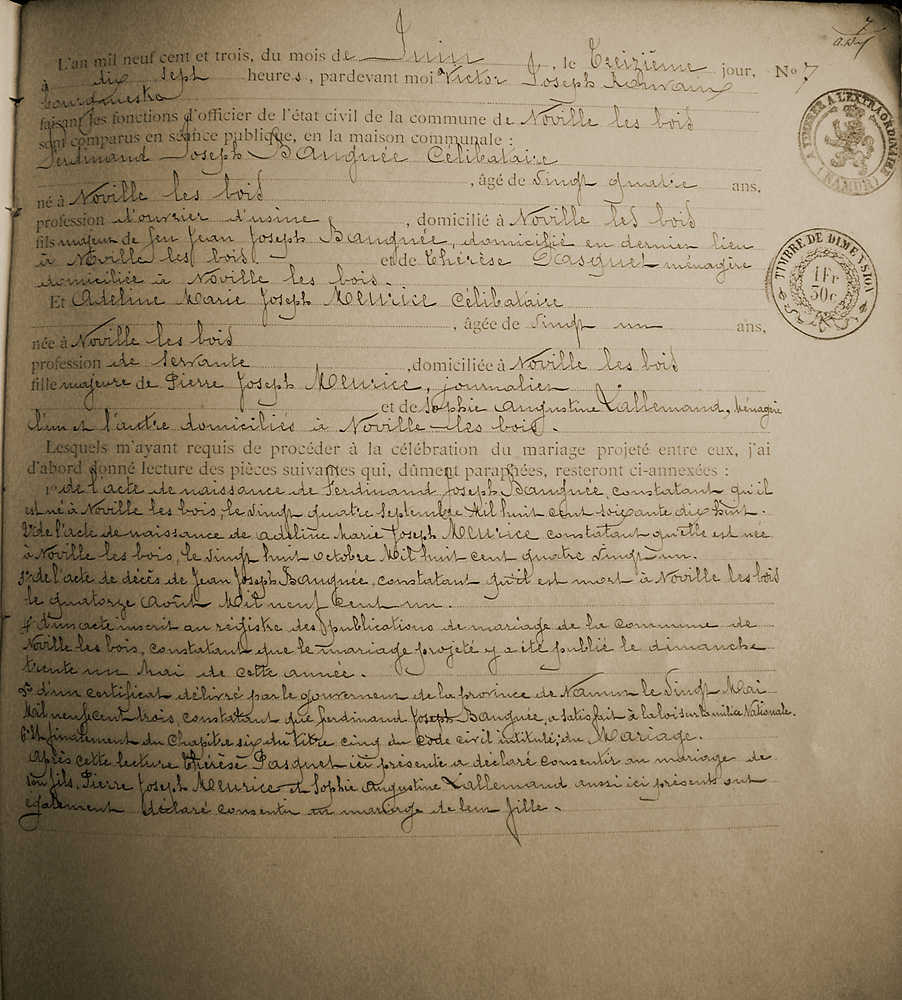 7
L'an mil neuf cent et trois, du mois de Juin, le Treizième jour, N° 7
à dix sept heures, pardevant moi Victor Joseph
bourgmestre
faisant les fonctions d'officier de l'état civil de la commune de Noville les bois
sont comparus en séance publique, en la maison communale :
Ferdinand Joseph Bauguée Célibataire
né à Noville les bois, âgé de Vingt quatre ans,
profession d'ouvrier d'usine, domicilié à Noville les bois
fils majeur de feu Jean Joseph Bauguée, domicilié en dernier lieu
à Noville les bois. et de Thérèse Pasquet ménagère
domiciliée à Noville les bois.
Et Adeline Marie Joseph Meurice Célibataire
née à Noville les bois, âgée de Vingt un ans,
profession de Servante, domiciliée à Noville les bois
fille majeure de Pierre Joseph Meurice, journalier
et de Sophie Augustine Lallemand, Ménagère
l'un et l'autre domiciliés à Noville-les bois.
Lesquels m'ayant requis de procéder à la célébration du mariage projeté entre eux, j'ai
d'abord donné lecture des pièces suivantes qui, dûment paraphées, resteront ci-annexées :
1° de l'acte de naissance de Ferdinand Joseph Bauguée, constatant qu'il
est né à Noville les bois, le Vingt quatre Septembre Mil huit cent soixante dix huit.
2° de l'acte de naissance de Adeline Marie Joseph Meurice constatant qu'elle est née
à Noville les bois, le Vingt huit Octobre Mil huit cent quatre Vingt un.
3° de l'acte de décès de Jean Joseph Bauguée, constatant qu'il est mort à Noville les bois
le quatorze Août Mil neuf cent un.
4° d'un acte inscrit au régistre des publications de mariage de la Commune de
Noville les bois, constatant que le mariage projeté y a été publié le dimanche
trente un Mai de cette année.
5° d'un certificat délivré par le gouverneur de la province de Namur le Vingt Mai
Mil neuf cent trois, constatant que Ferdinand Joseph Bauguée, a satisfait à la loi sur la milice Nationale.
6° Et finalement du Chapitre six du titre cinq du Code civil intitulé; du Mariage.
Après cette lecture Thérèse Pasquet ici présente a déclaré consentir au mariage de
son fils, Pierre Joseph Meurice et Sophie Augustine Lallemand aussi ici présents ont
également déclaré consentir au mariage de leur fille.
TIMBRÉ A L'EXTRAORDINAIRE
(NAMUR)
TIMBRE DE DIMENSION
1 Fr
30 c